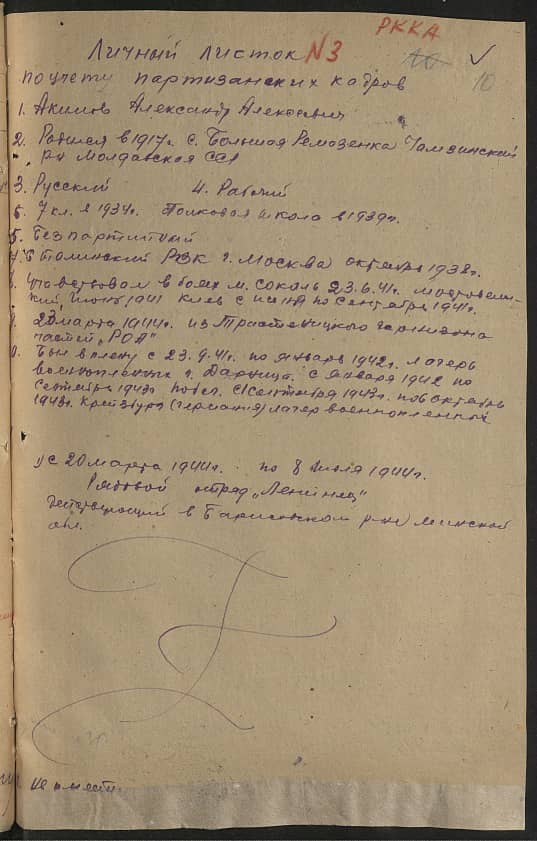 РККА
Личный листок №3
10
по учету партизанских кадров
1. Акимов Александр Алексеевич
2. Родился в 1917г. с. Большая Ремезенка Чамзинский
р-н Молдавская ССР
3. Русский 4. Рабочий
5. 7 кл. в 1934г. Полковая школа в 1939г.
6. Безпартийный
7. Сталинский РВК г. Москва октябрь 1938г.
8. Участвовал в боях м. Соколь 23.6.41г.
июнь 1941 Киев с июня по сентябрь 1941г.
9. 20 марта 1944г. из гарнизона
частей "РОА"
10. Был в плену с 23.9.41г. по январь 1942г. лагерь
военнопленных г. Дарница. с января 1942 по
сентябрь 1943г. с сентября 1943г. по октябрь
1943г. (Германия) лагер военнопленных
11) с 20 марта 1944г. по 8 июля 1944г.
Рядовой отряд "Ленинец"
действующий в Борисовском р-не Минской
обл.